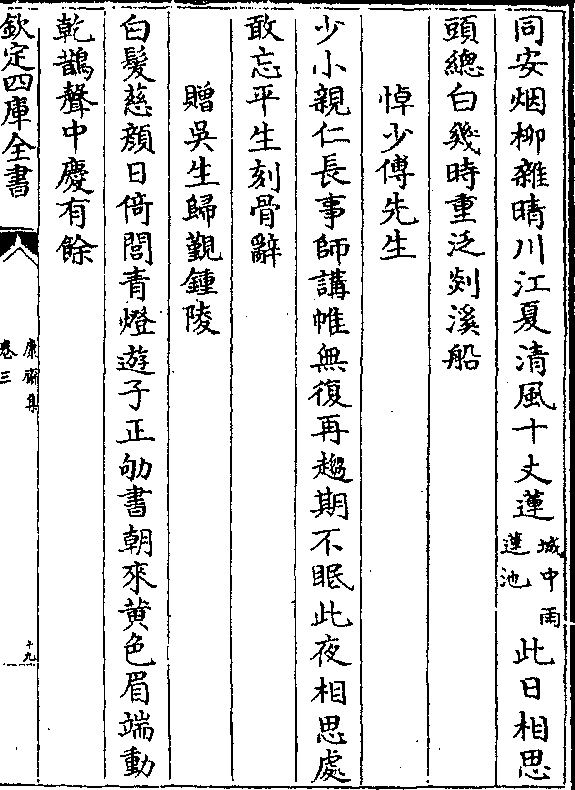 同安烟柳雜晴川江夏清風十丈蓮城中雨蓮池此日相思
頭總白幾時重泛剡溪船
悼少傅先生
少小親仁長事師講帷無復再趨期不眠此夜相思處
敢忘平生刻骨辭
贈吳生歸覲鍾陵
白髮慈顔日倚閭青燈遊子正劬書朝來黄色眉端動
乾鵲聲中慶有餘
欽定四庫全書
康齋集
卷三
十九